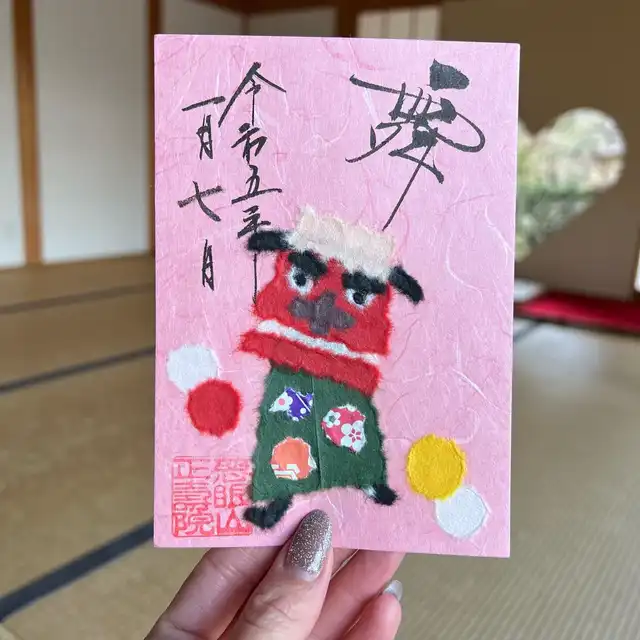 夢
令和五年
一月七日
慈眼山
正壽院